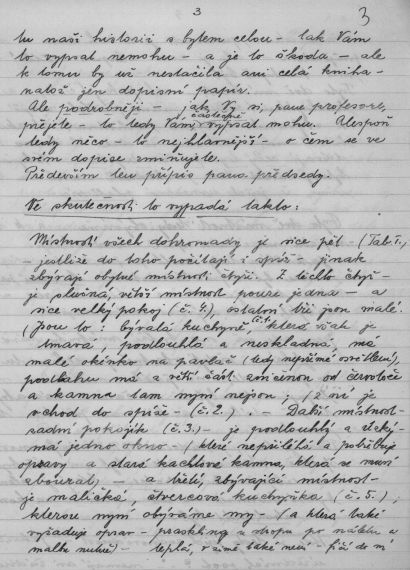 3
3
tu naši historii s bytem celou - tak Vám
to vypsat nemohu - a je to škoda - ale
k tomu by už nestačila ani celá kniha -
natož jen dopisní papír.
Ale podrobněji - jak Vy si, pane profesore,
přejete - to tedy Vám částečně vypsat mohu. Alespoň
tedy něco - to nejhlavnější - o čem se ve
svém dopise zmiňujete.
Především ten přípis pana předsedy.
Ve skutečnosti to vypadá takto:
Místností všech dohromady je sice pět - (Tab. 1.,)
- jestliže do toho počítají i spíž - jinak
zbývají obytné místnosti čtyři. Z těchto čtyř -
je slušná, větší místnost pouze jedna - a
sice velký pokoj (č. 4.), ostatní tři jsou malé.
(Jsou to: bývalá kuchyně, č. 1. která však je
tmavá, podlouhlá a neskladná, má
malé okénko na pavlač (tedy nepřímé osvětlení),
podlahu má z větší části zničenou od červotoče
a kamna tam nyní nejsou; z ní je
vchod do spíže - (č. 2.). - Další místnost -
zadní pokojík (č. 3.) - je podlouhlý a úzký -
má jedno okno - (které nepřiléhá a potřebuje
opravy - a stará kachlová kamna, která se musí
zbourat), - a třetí, zbývající místnost -
je maličká, čtvercová kuchyňka (č. 5.),
kterou nyní obýváme my - (a která také
vyžaduje oprav - praskliny u stropu po náletu a
malbu nutně) - teplá, v zimě také není - fičí do ní